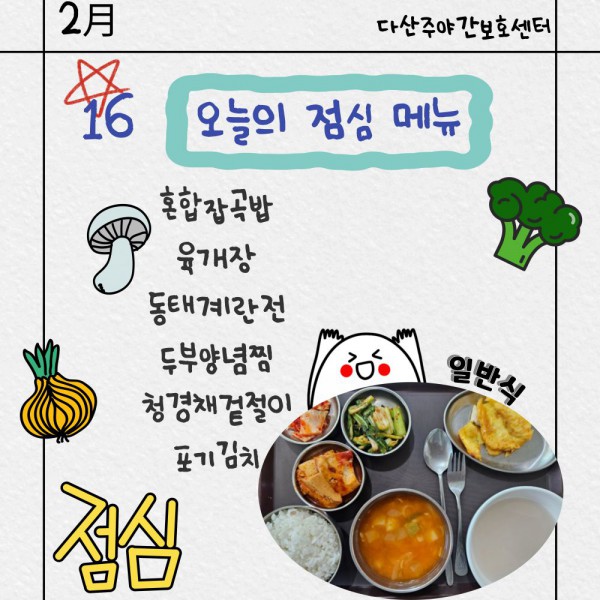 2月
다산주야간보호센터
16
오늘의 점심 메뉴
혼합잡곡밥
육개장
동태계란전
두부양념찜
청경채겉절이
포기김치
일반식
점심